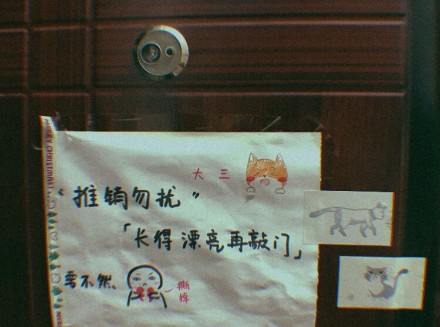 大三
“推销勿扰”
「长得漂亮再敲门」
要不然、
撕掉